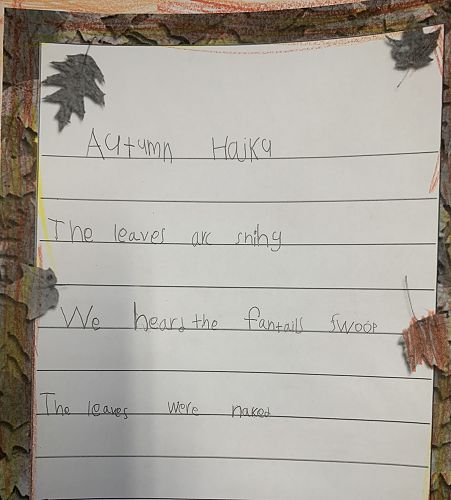 Autumn Haiku
The leaves are snihy
We heard the fantails swoop
The leaves were naked